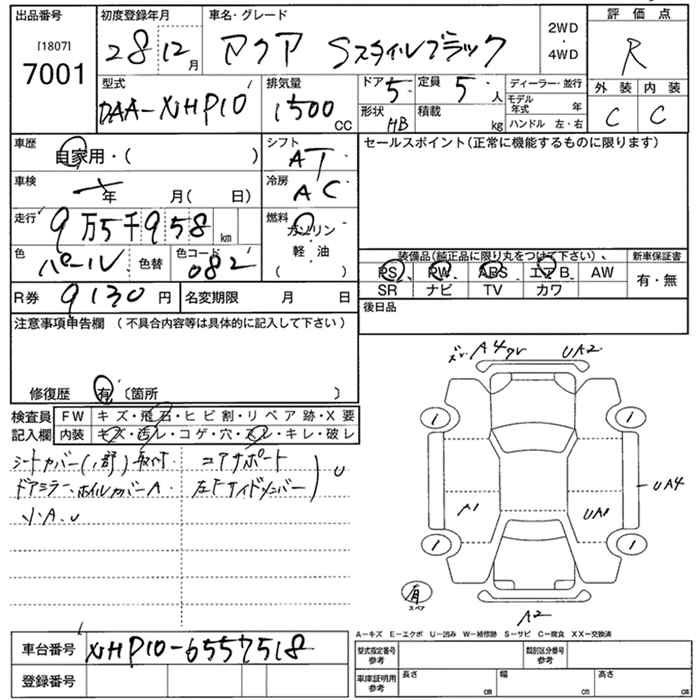 出品番号 初度登録年月 車名・グレード 2WD・4WD 評価点
[1807] 7001 28 12月 アクア Sスタイルブラック R
型式 排気量 ドア 5 定員 5人 ディーラー・並行 外装 内装
DAA-NHP10 1500CC 形状 HB 積載 kg モデル年式 年 C C
ハンドル 左・右
車歴 自家用・( ) シフト AT セールスポイント(正常に機能するものに限ります)
車検 年 月( 日) 冷房 AC
走行 9万5千958km 燃料 ガソリン
軽・油
( )
色 パール 色替 色コード 082
装備品(純正品に限り丸をつけて下さい) 新車保証書
PS PW ABS エアB AW 有・無
SR ナビ TV カワ
R券 9130円 名変期限 月 日 後日品
注意事項申告欄 (不具合内容等は具体的に記入して下さい)
修復歴 有 〔箇所 〕
検査員記入欄 FW キズ・飛石・ヒビ割・リペア跡・X要
内装 キズ・汚レ・コゲ・穴・スレ・キレ・破レ
シートカバー(1部)取付 コアサポート
ドアミラー、ホイルカバーA 左Fサイドメンバー U
小A.U
A4 UA2
1 1
A1 UA1 UA4
1 1
有 スペア A2
A-キズ E-エクボ U-凹み W-補修跡 S-サビ C-腐食 XX-交換済
車台番号 NHP10-6557518 型式指定番号参考 類別区分番号参考
登録番号 車庫証明用参考 長さ cm 幅 cm 高さ cm